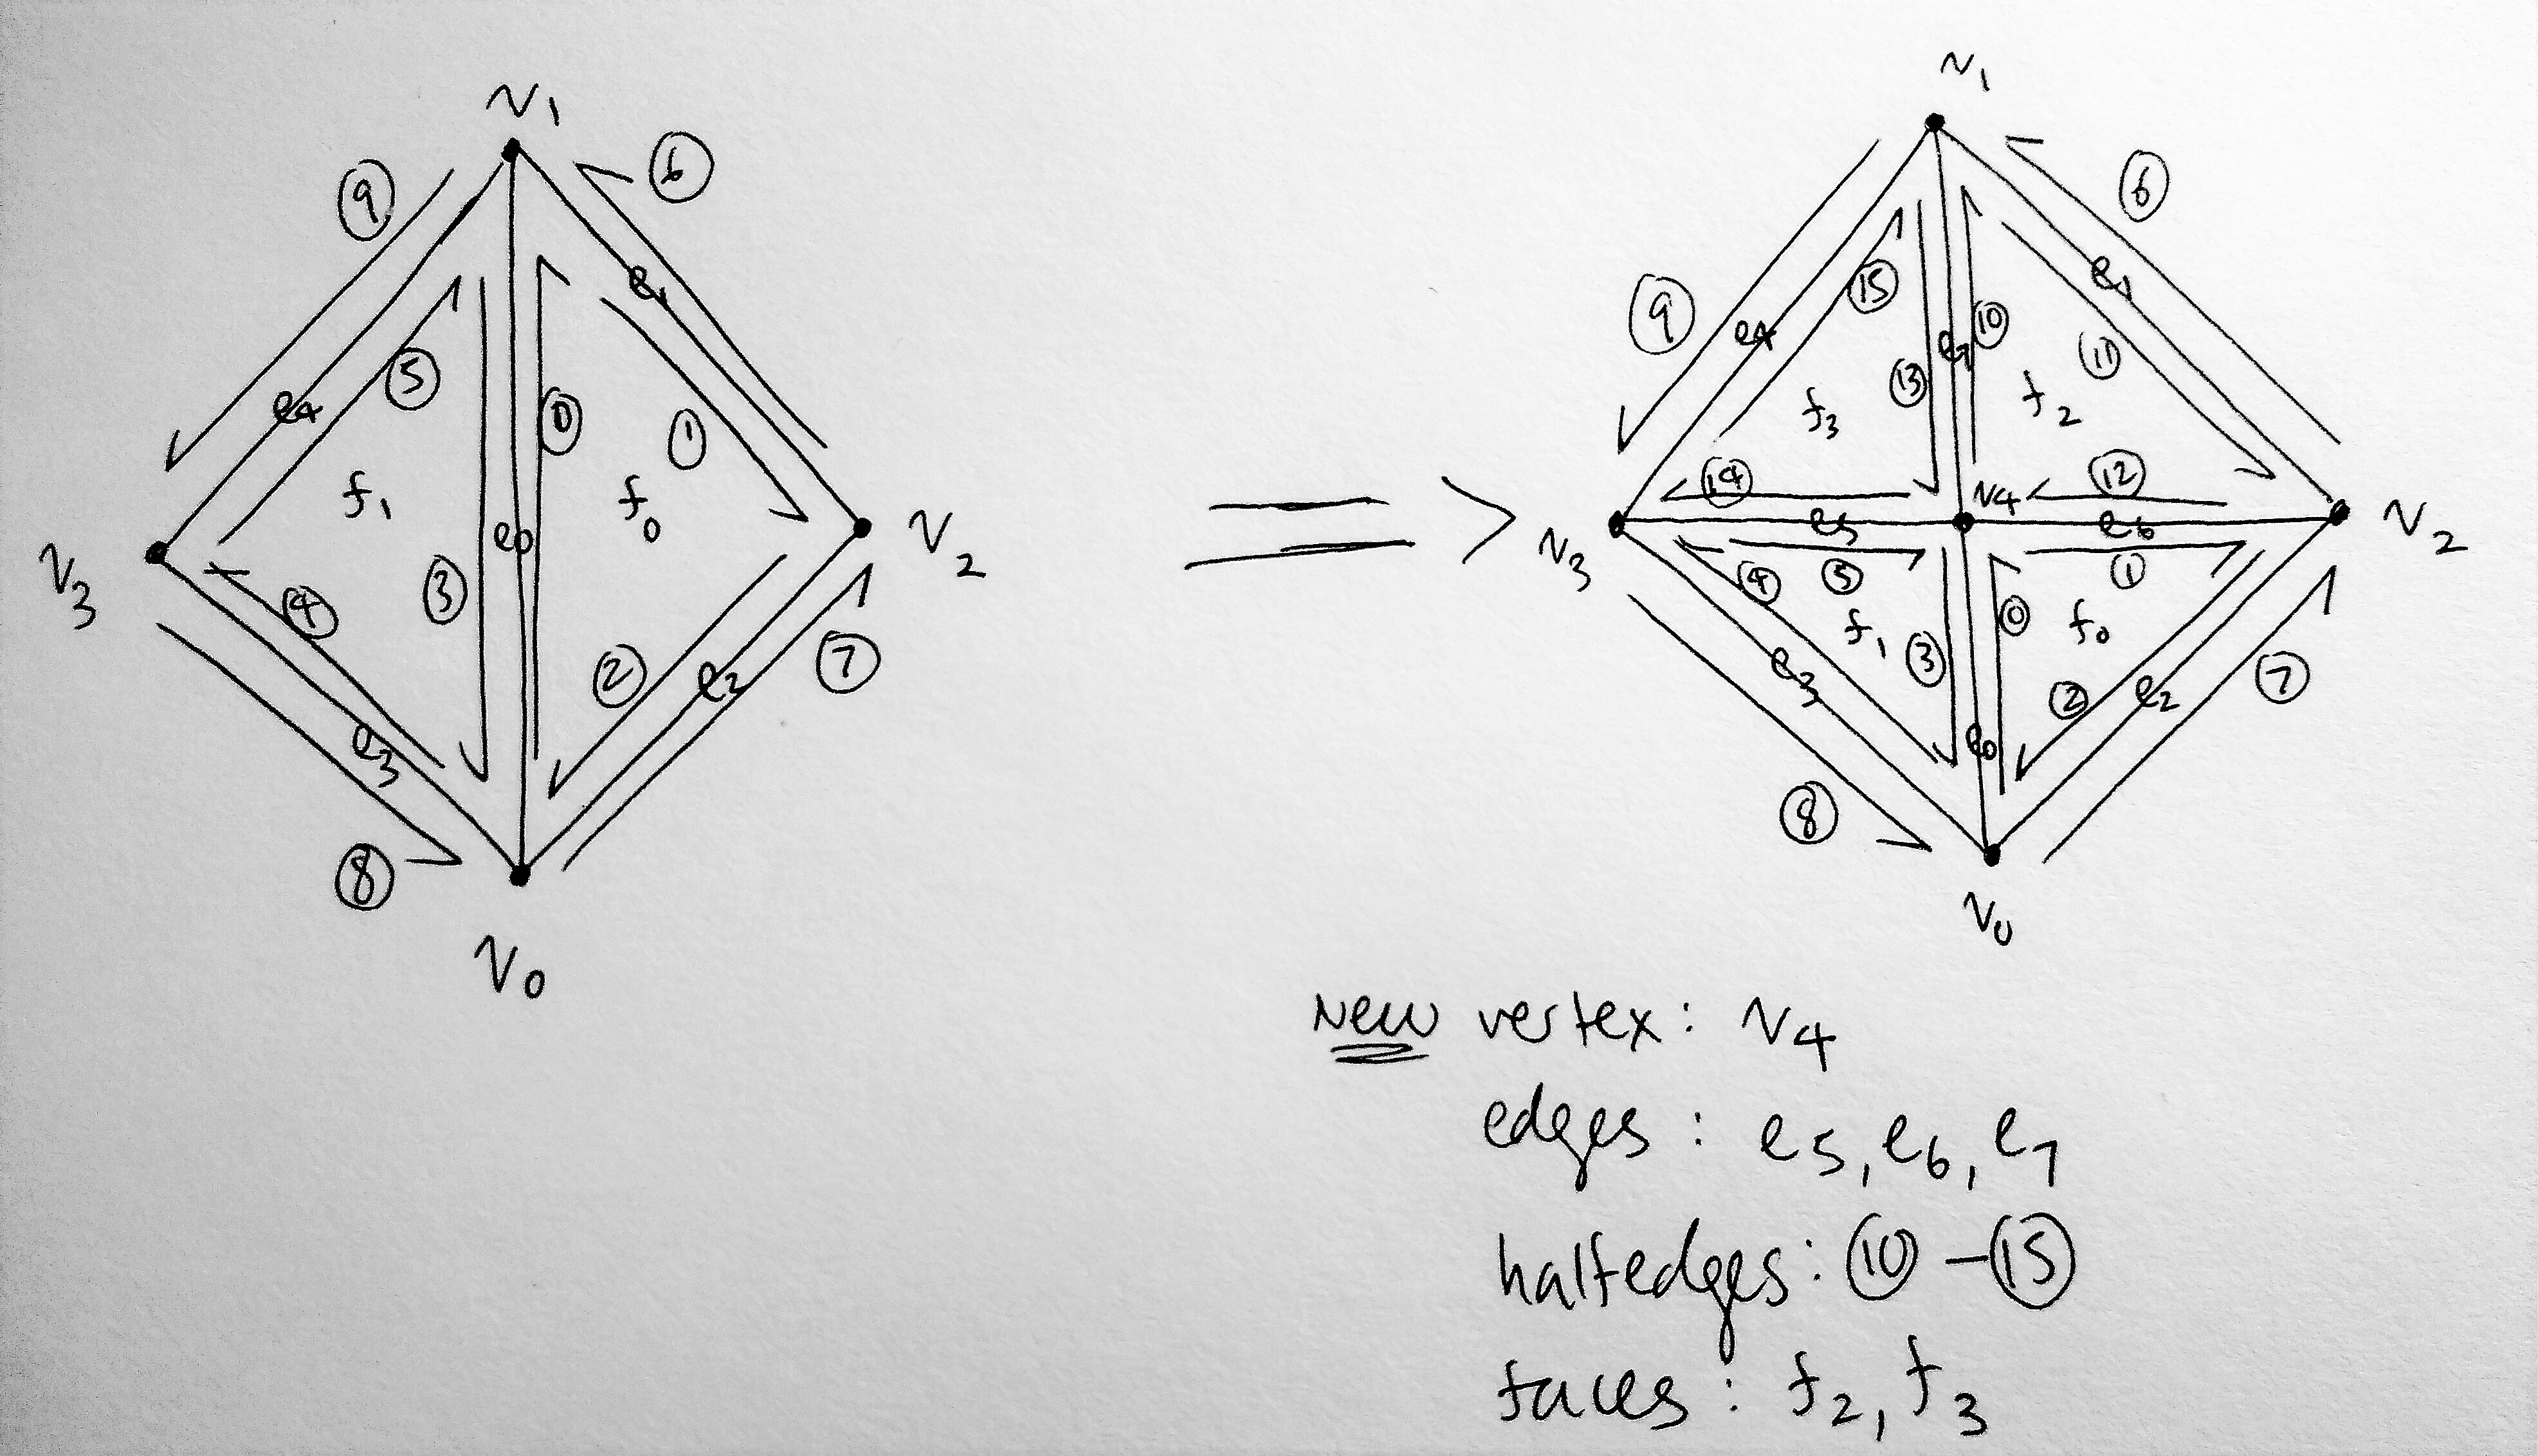 v1
9
6
e1
e4
5
0
1
f1
f0
e0
v3
v2
4
3
2
e2
7
e3
8
v0
=>
v1
6
9
e4
15
e7
10
e1
11
13
f3
f2
14
12
v4
v3
e5
e6
v2
4
5
1
f1
3
0
f0
e3
2
e2
7
e0
8
v0
New vertex: v4
edges: e5, e6, e7
halfedges: 10 – 15
faces: f2, f3